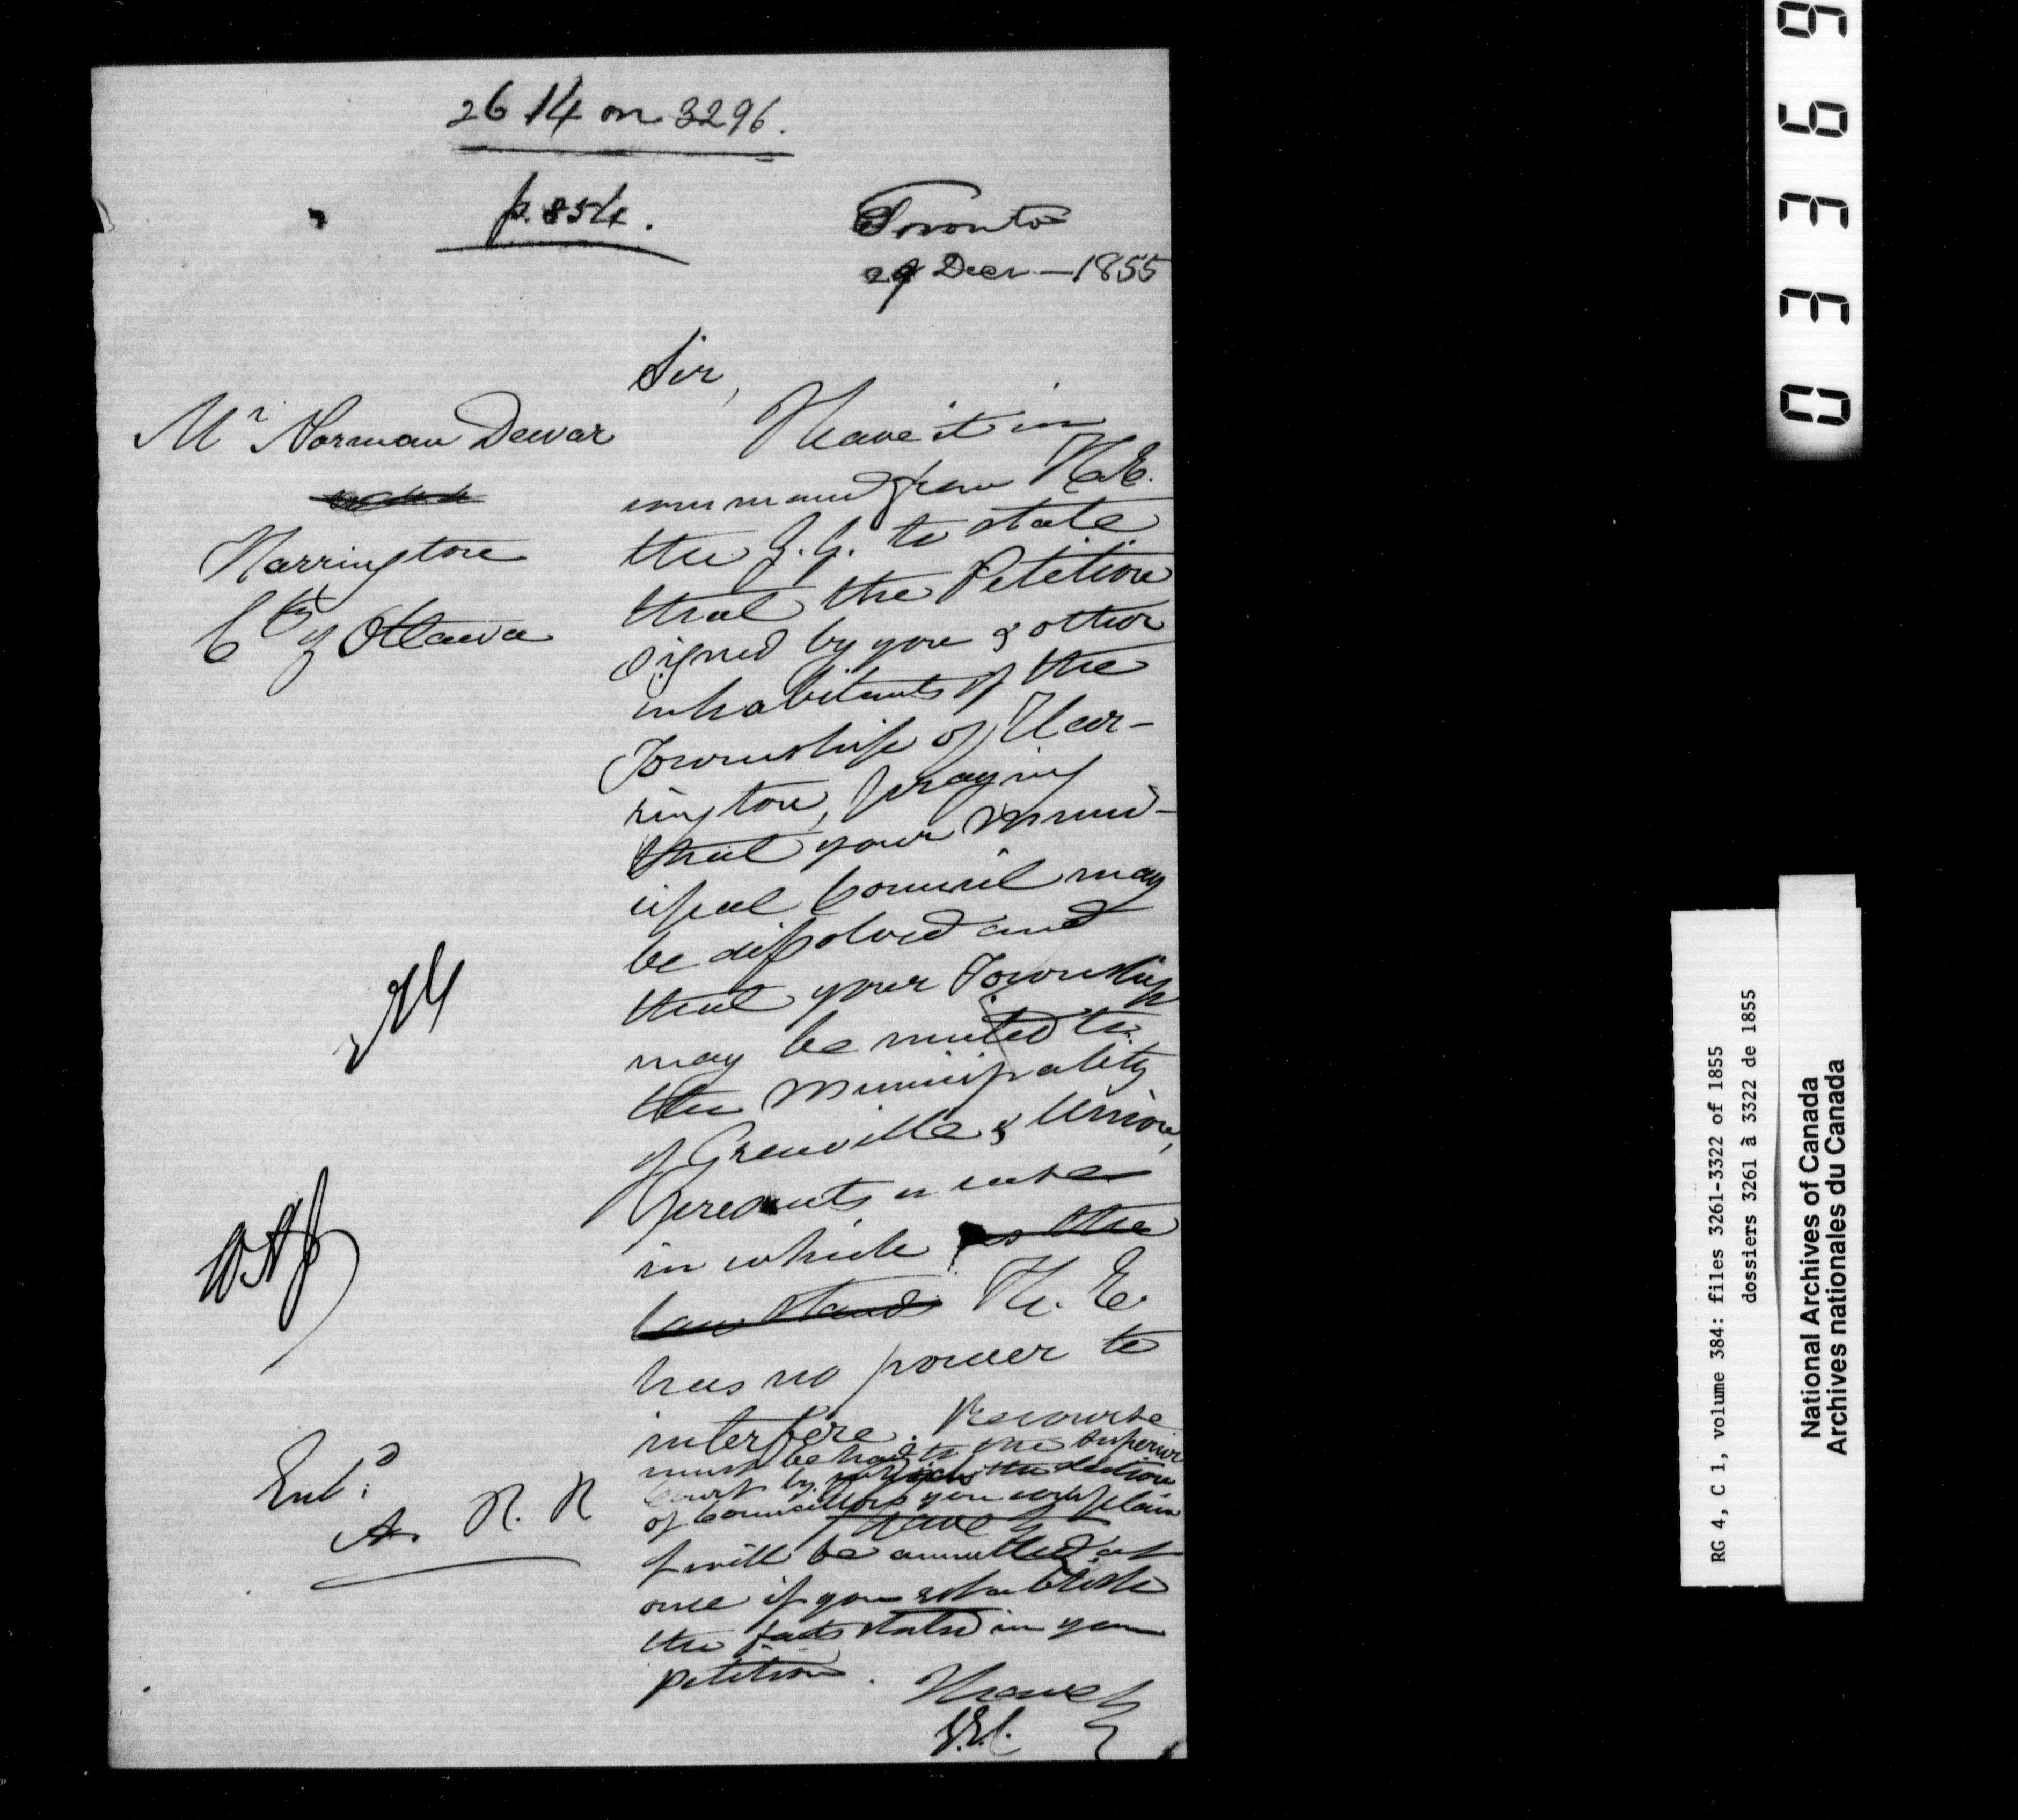 2614 on 3296.
p. 854.
Toronto
29 Decr — 1855
Sir,
Mr Norman Dewar
Harrington
Cty of Ottawa
I have it in
command from H.E.
the G.G. to state
that the Petition
signed by you & other
inhabitants of the
Township of Har-
rington, praying
that your Munic-
ipal Council may
be dissolved and
that your Township
may be united to
the Municipality
of Grenville & Union,
presents a case
in which as the
law stands H. E.
has no power to
interfere. Recourse
must be had to the Superior
Court by which the election
of Councillors you complain
have
of will be annulled at
once if you establish
the facts stated in your
petition.
I have &
G.E.C.
Entd:
A. R. R
03369
RG 4, C 1, volume 384: files 3261-3322 of 1855
dossiers 3261 à 3322 de 1855
National Archives of Canada
Archives nationales du Canada